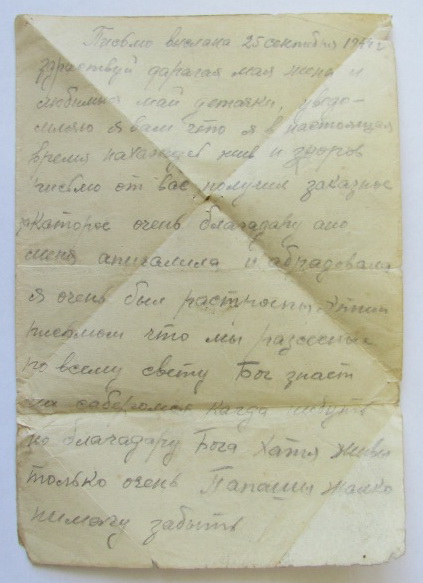 Письмо вислана 25 сентября
здраствуй дарагая мая жена и
любимыи маи детачки, уведо-
мляю я вам что я в настоящея
время нахажусь жив и здоров
письмо от вас получил заказное
за каторое очень благадару ано
меня апичалила и абрадовала
я очень был растроены этим
писмом что мы разсеены
по всему свету Бог знает
саберомся кагда нибуть
но благадару Бога хатя живы
только очень Папашы жалко
нимагу забыть